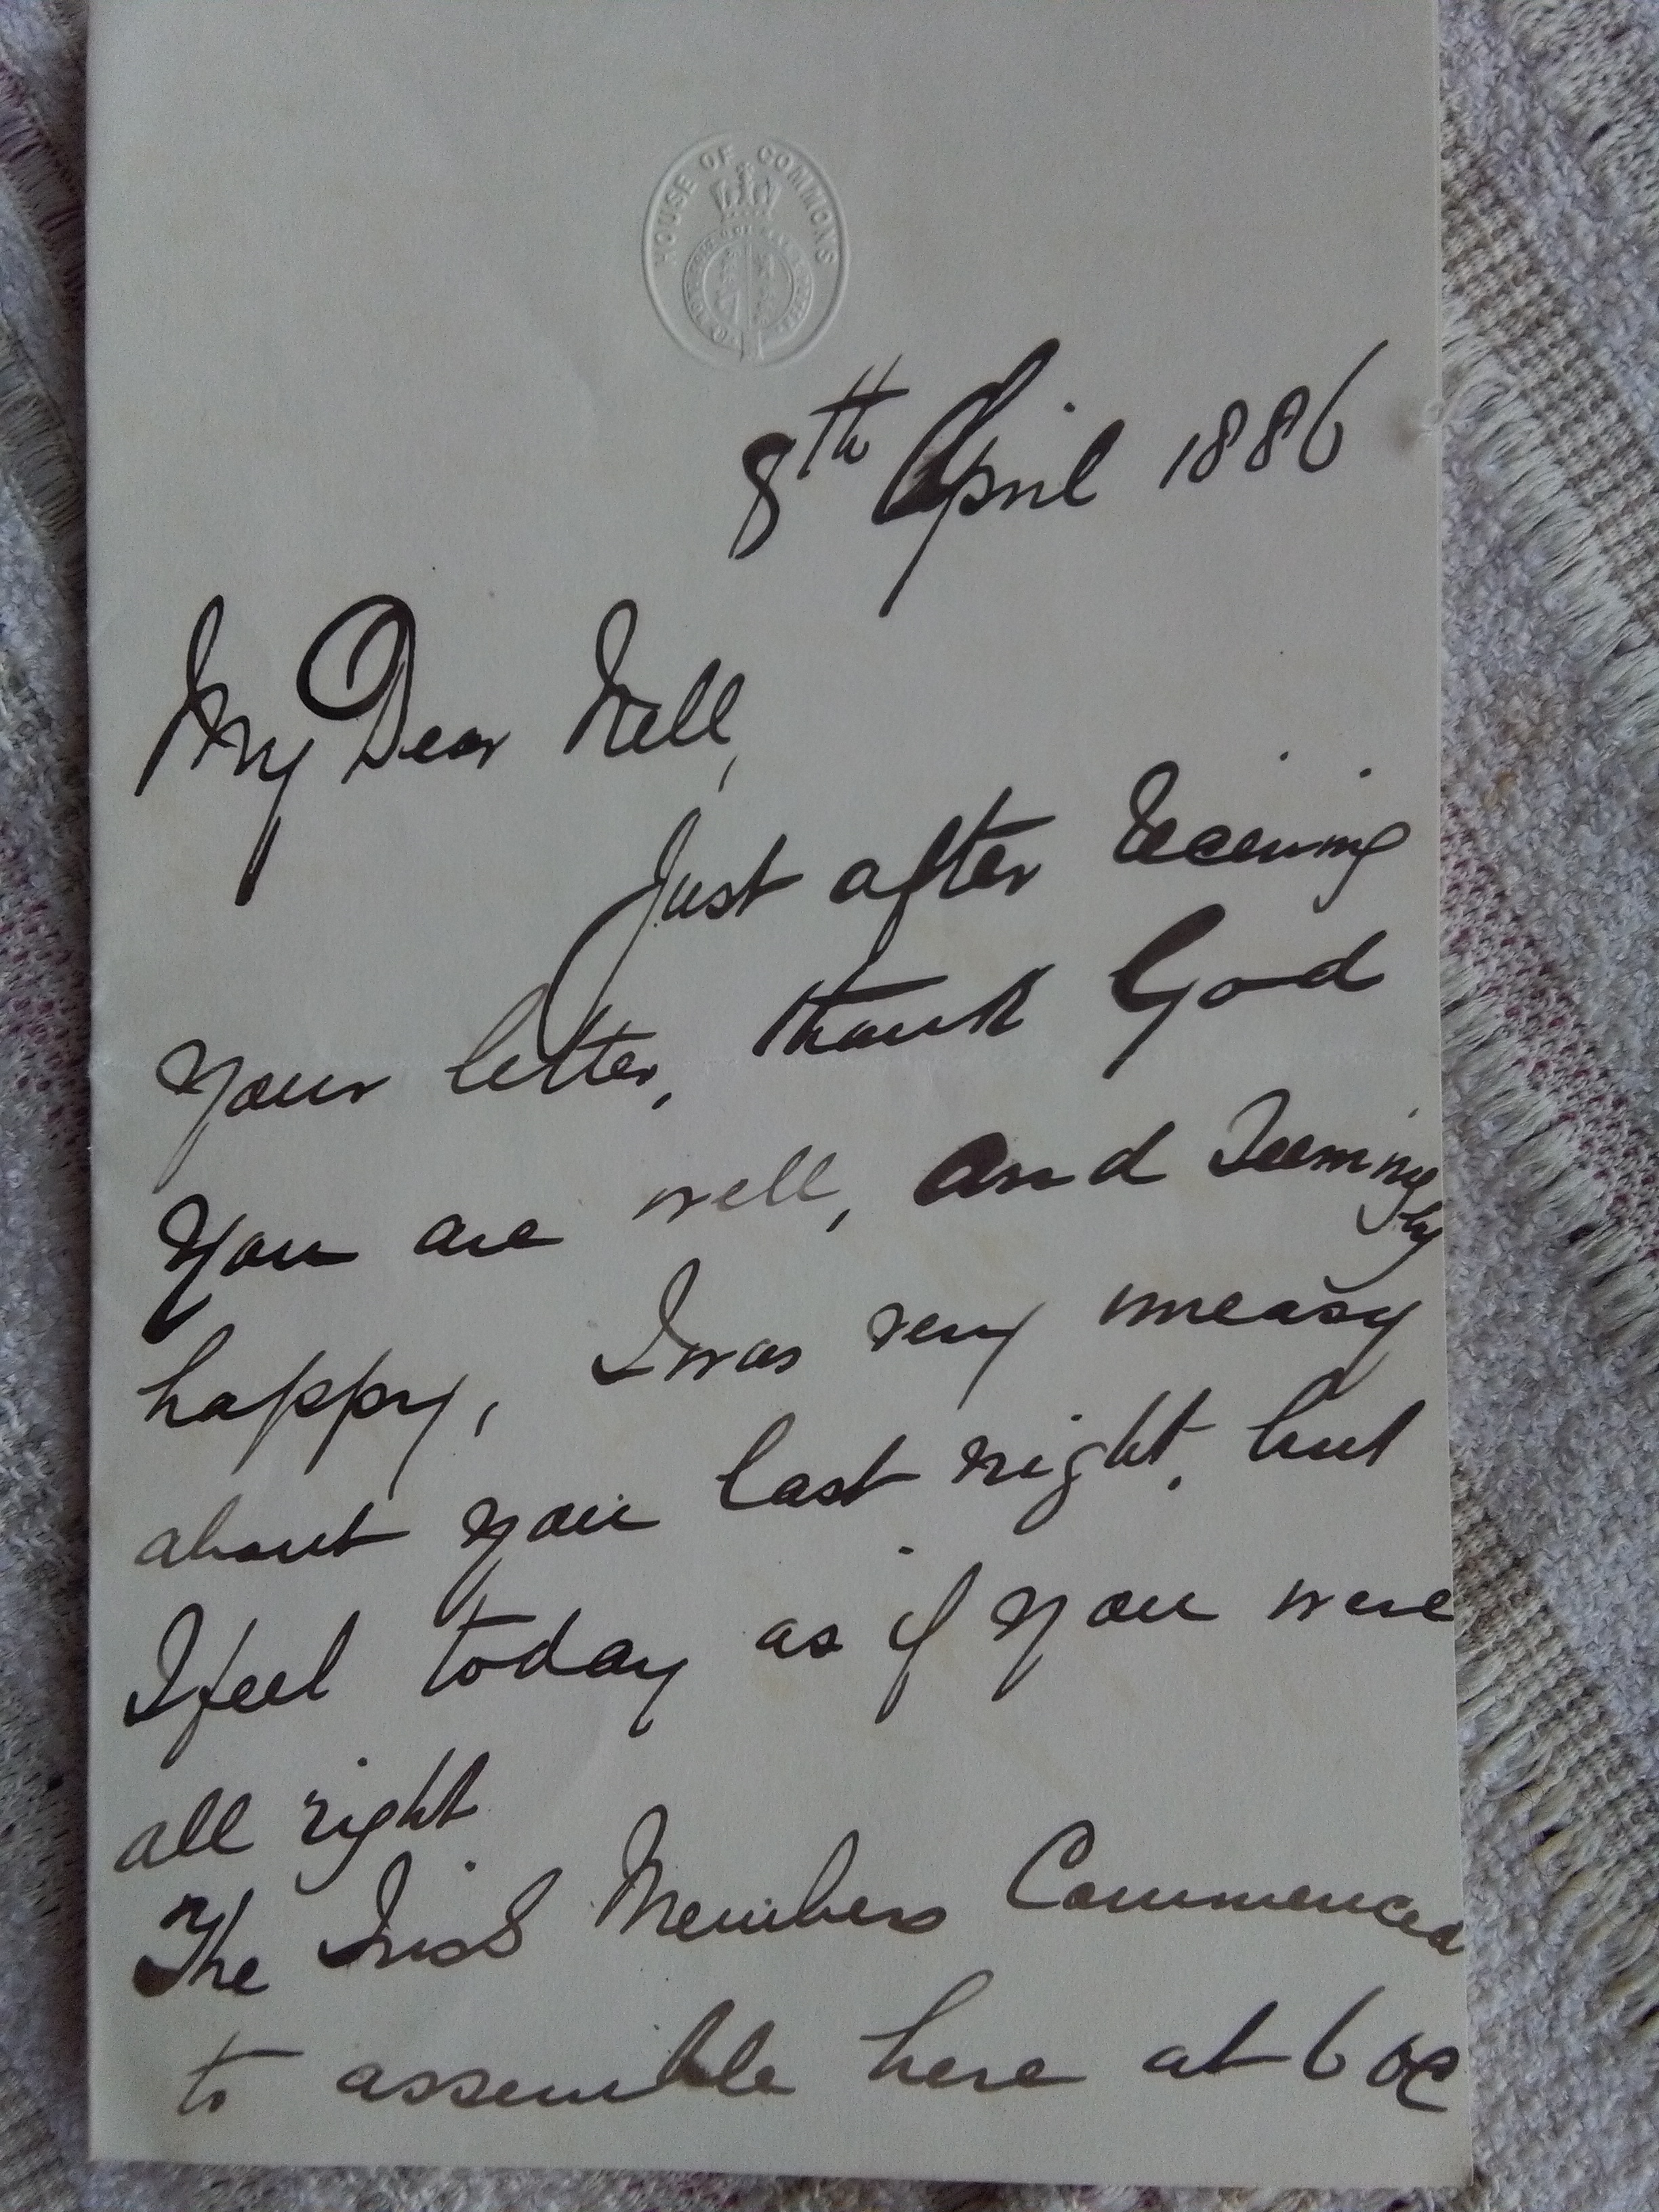 HOUSE OF COMMONS
8th April 1886
My Dear Nell,
Just after receiving
your letter, thank God
you are well, and seemingly
happy, I was very uneasy
about you last night, but
I feel today as if you were
all right
The Irish Members Commenced
to assemble here at 6 oc